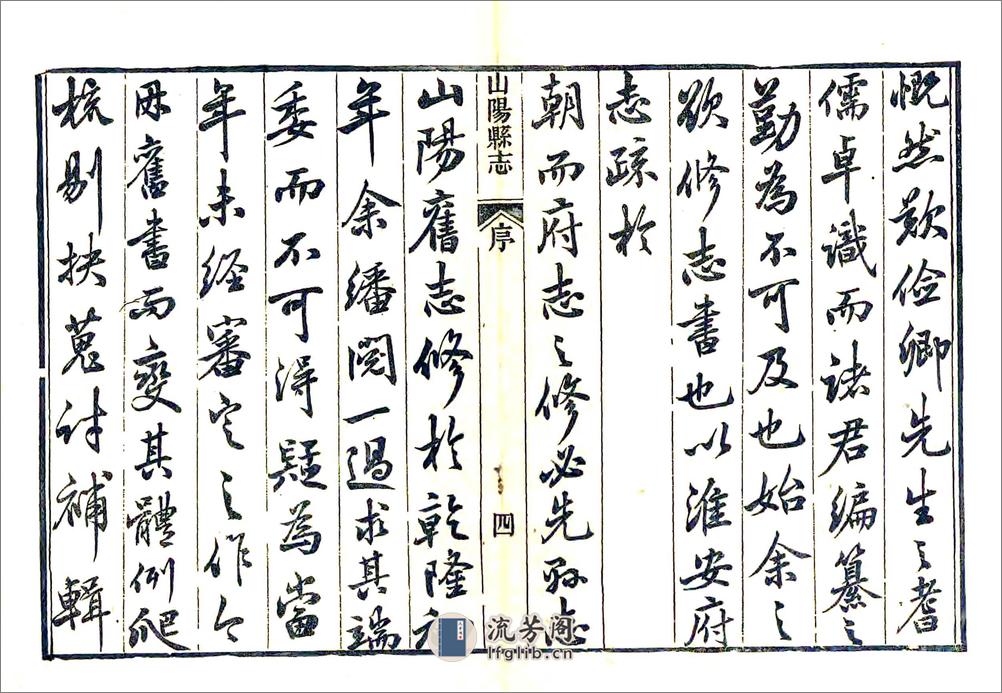 慨然歎儉卿先生之耆
儒卓識而諸君編纂之
勤為不可及也始余之
欲修志書也以淮安府
志疏於
朝而府志之修必先縣志
山陽縣志 序 四
山陽舊志修於乾隆初
年余繙閱一過求其端
委而不可得疑為當
年未經審定之作今
因舊書而變其體例爬
梳剔抉蒐討補輯
流芳阁
lfglib.cn